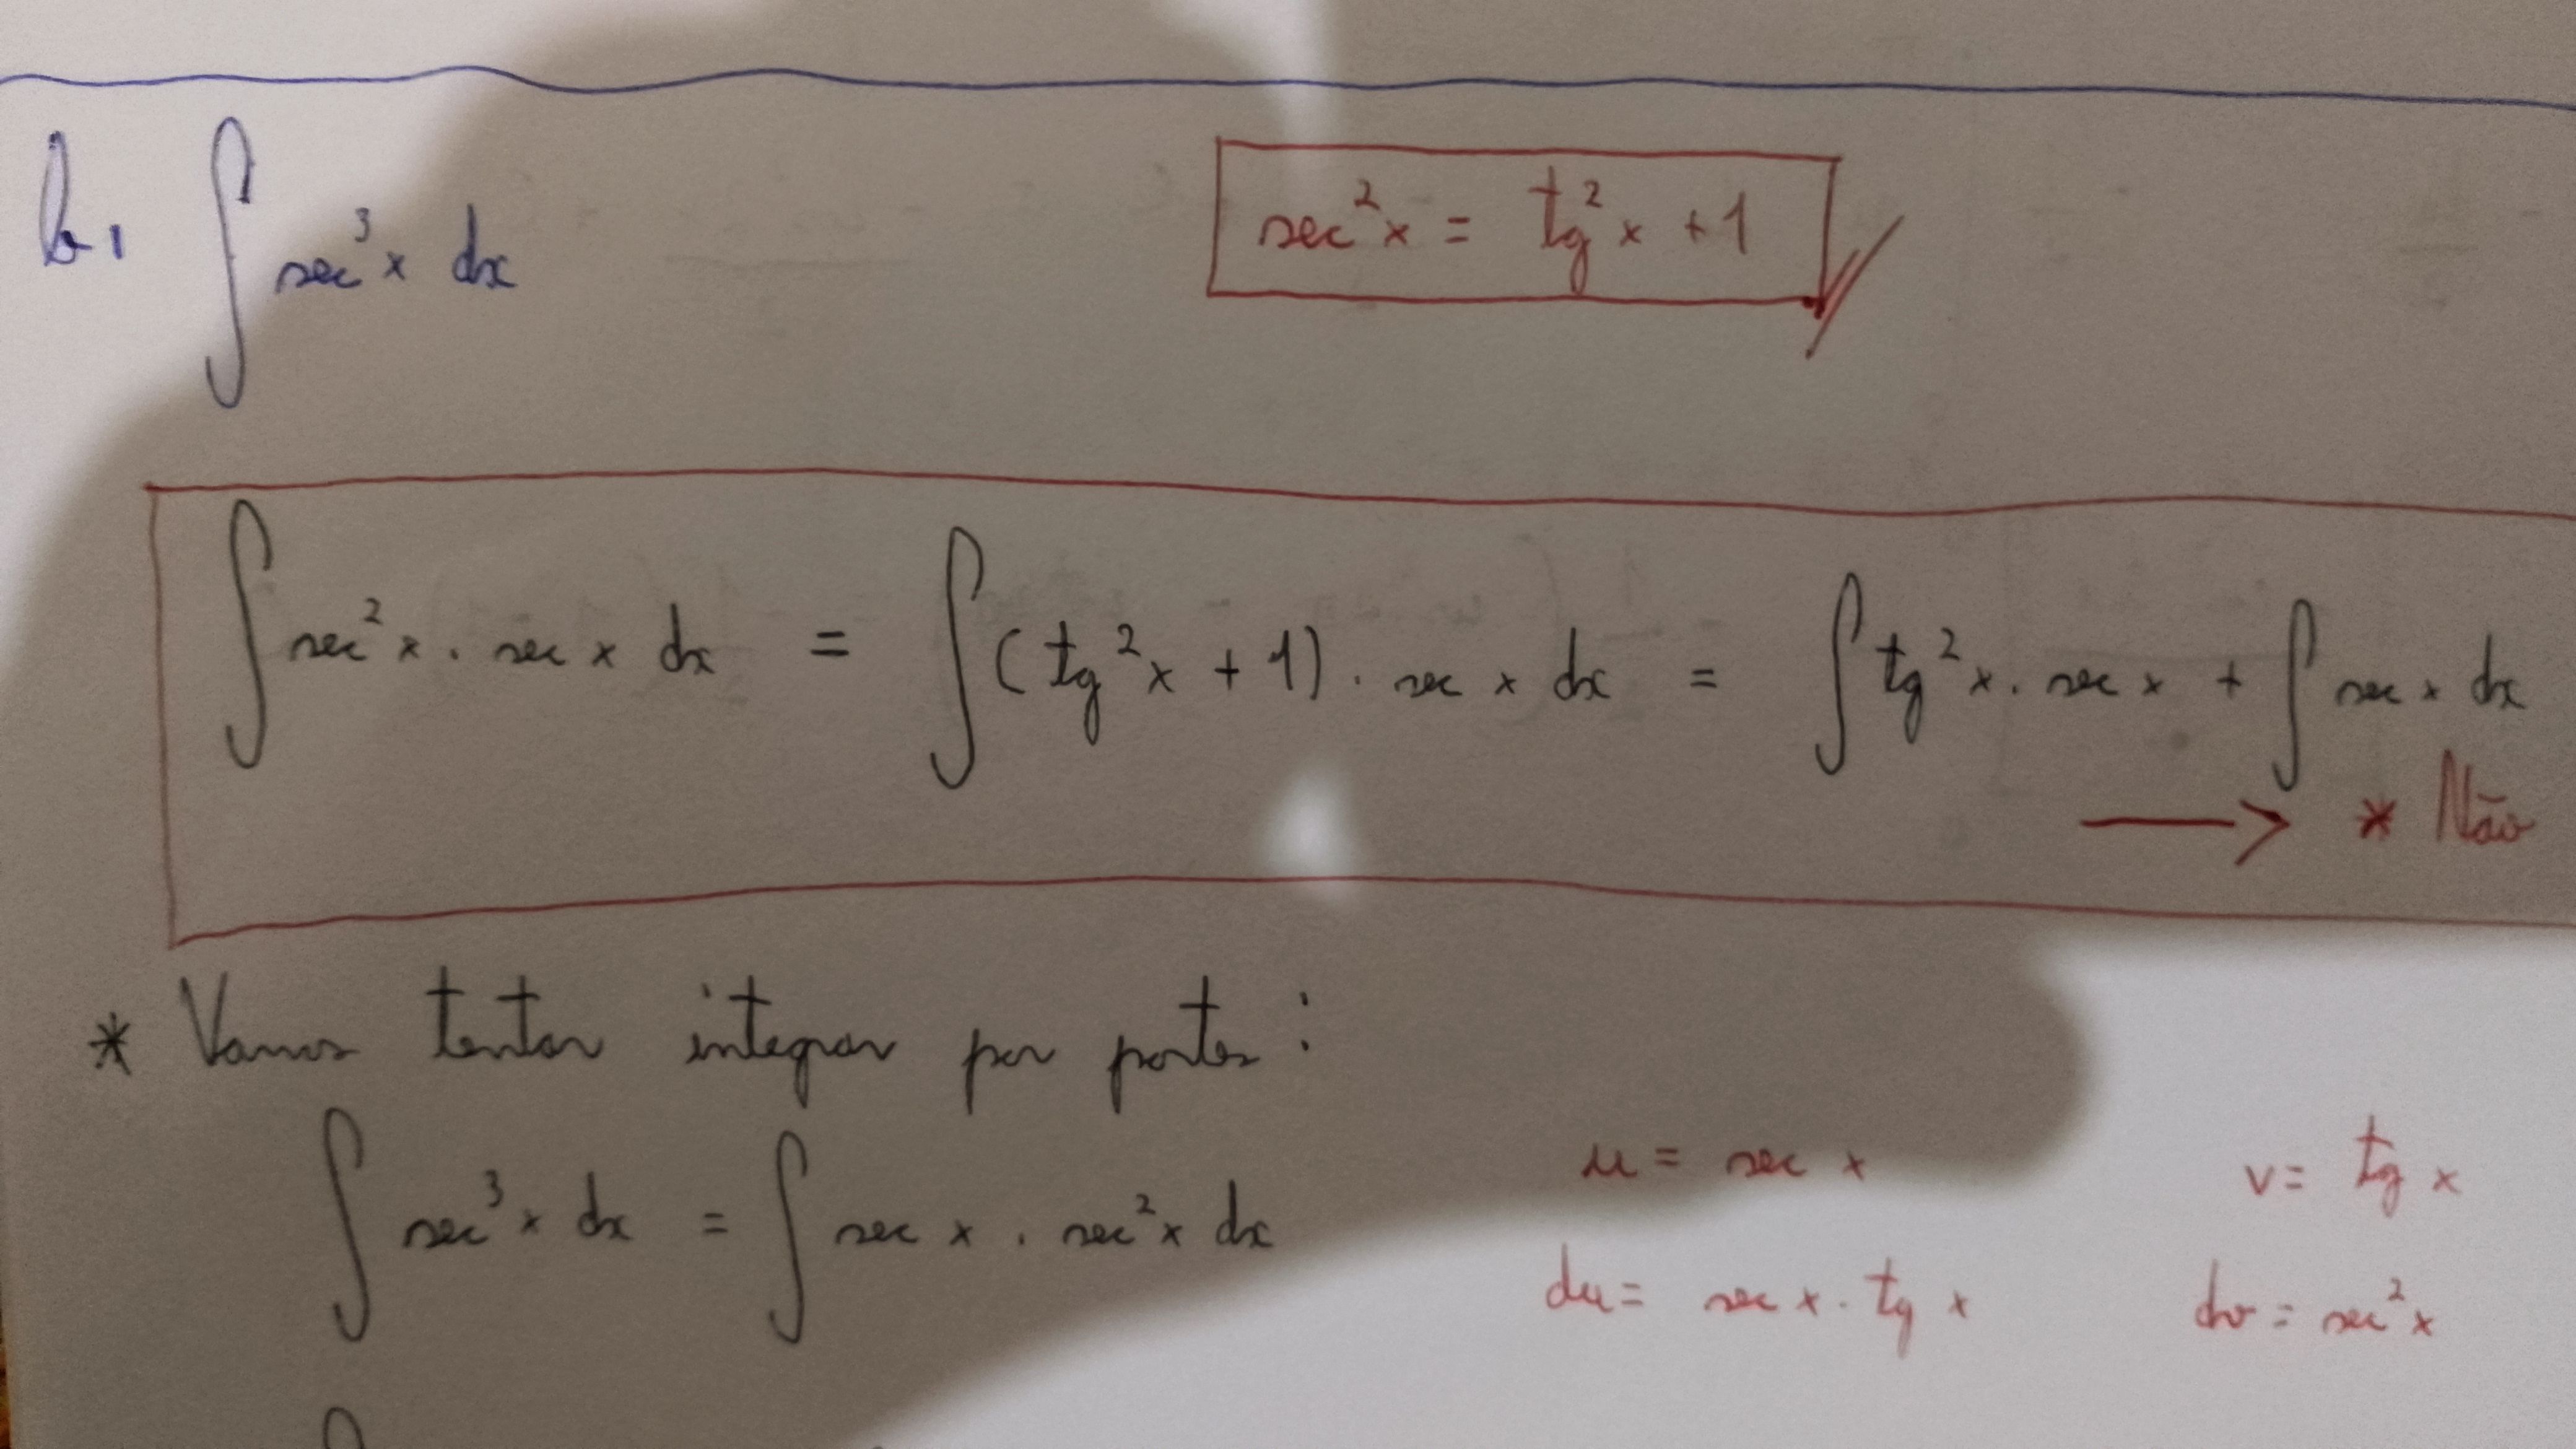 b. ∫ sec³x dx
sec²x = tg²x + 1
∫ sec²x . sec x dx = ∫ (tg²x + 1) . sec x dx = ∫ tg²x . sec x + ∫ sec x dx
→ * Não
* Vamos tentar integrar por partes:
u = sec x v = tg x
∫ sec³x dx = ∫ sec x . sec²x dx
du = sec x . tg x dv = sec²x